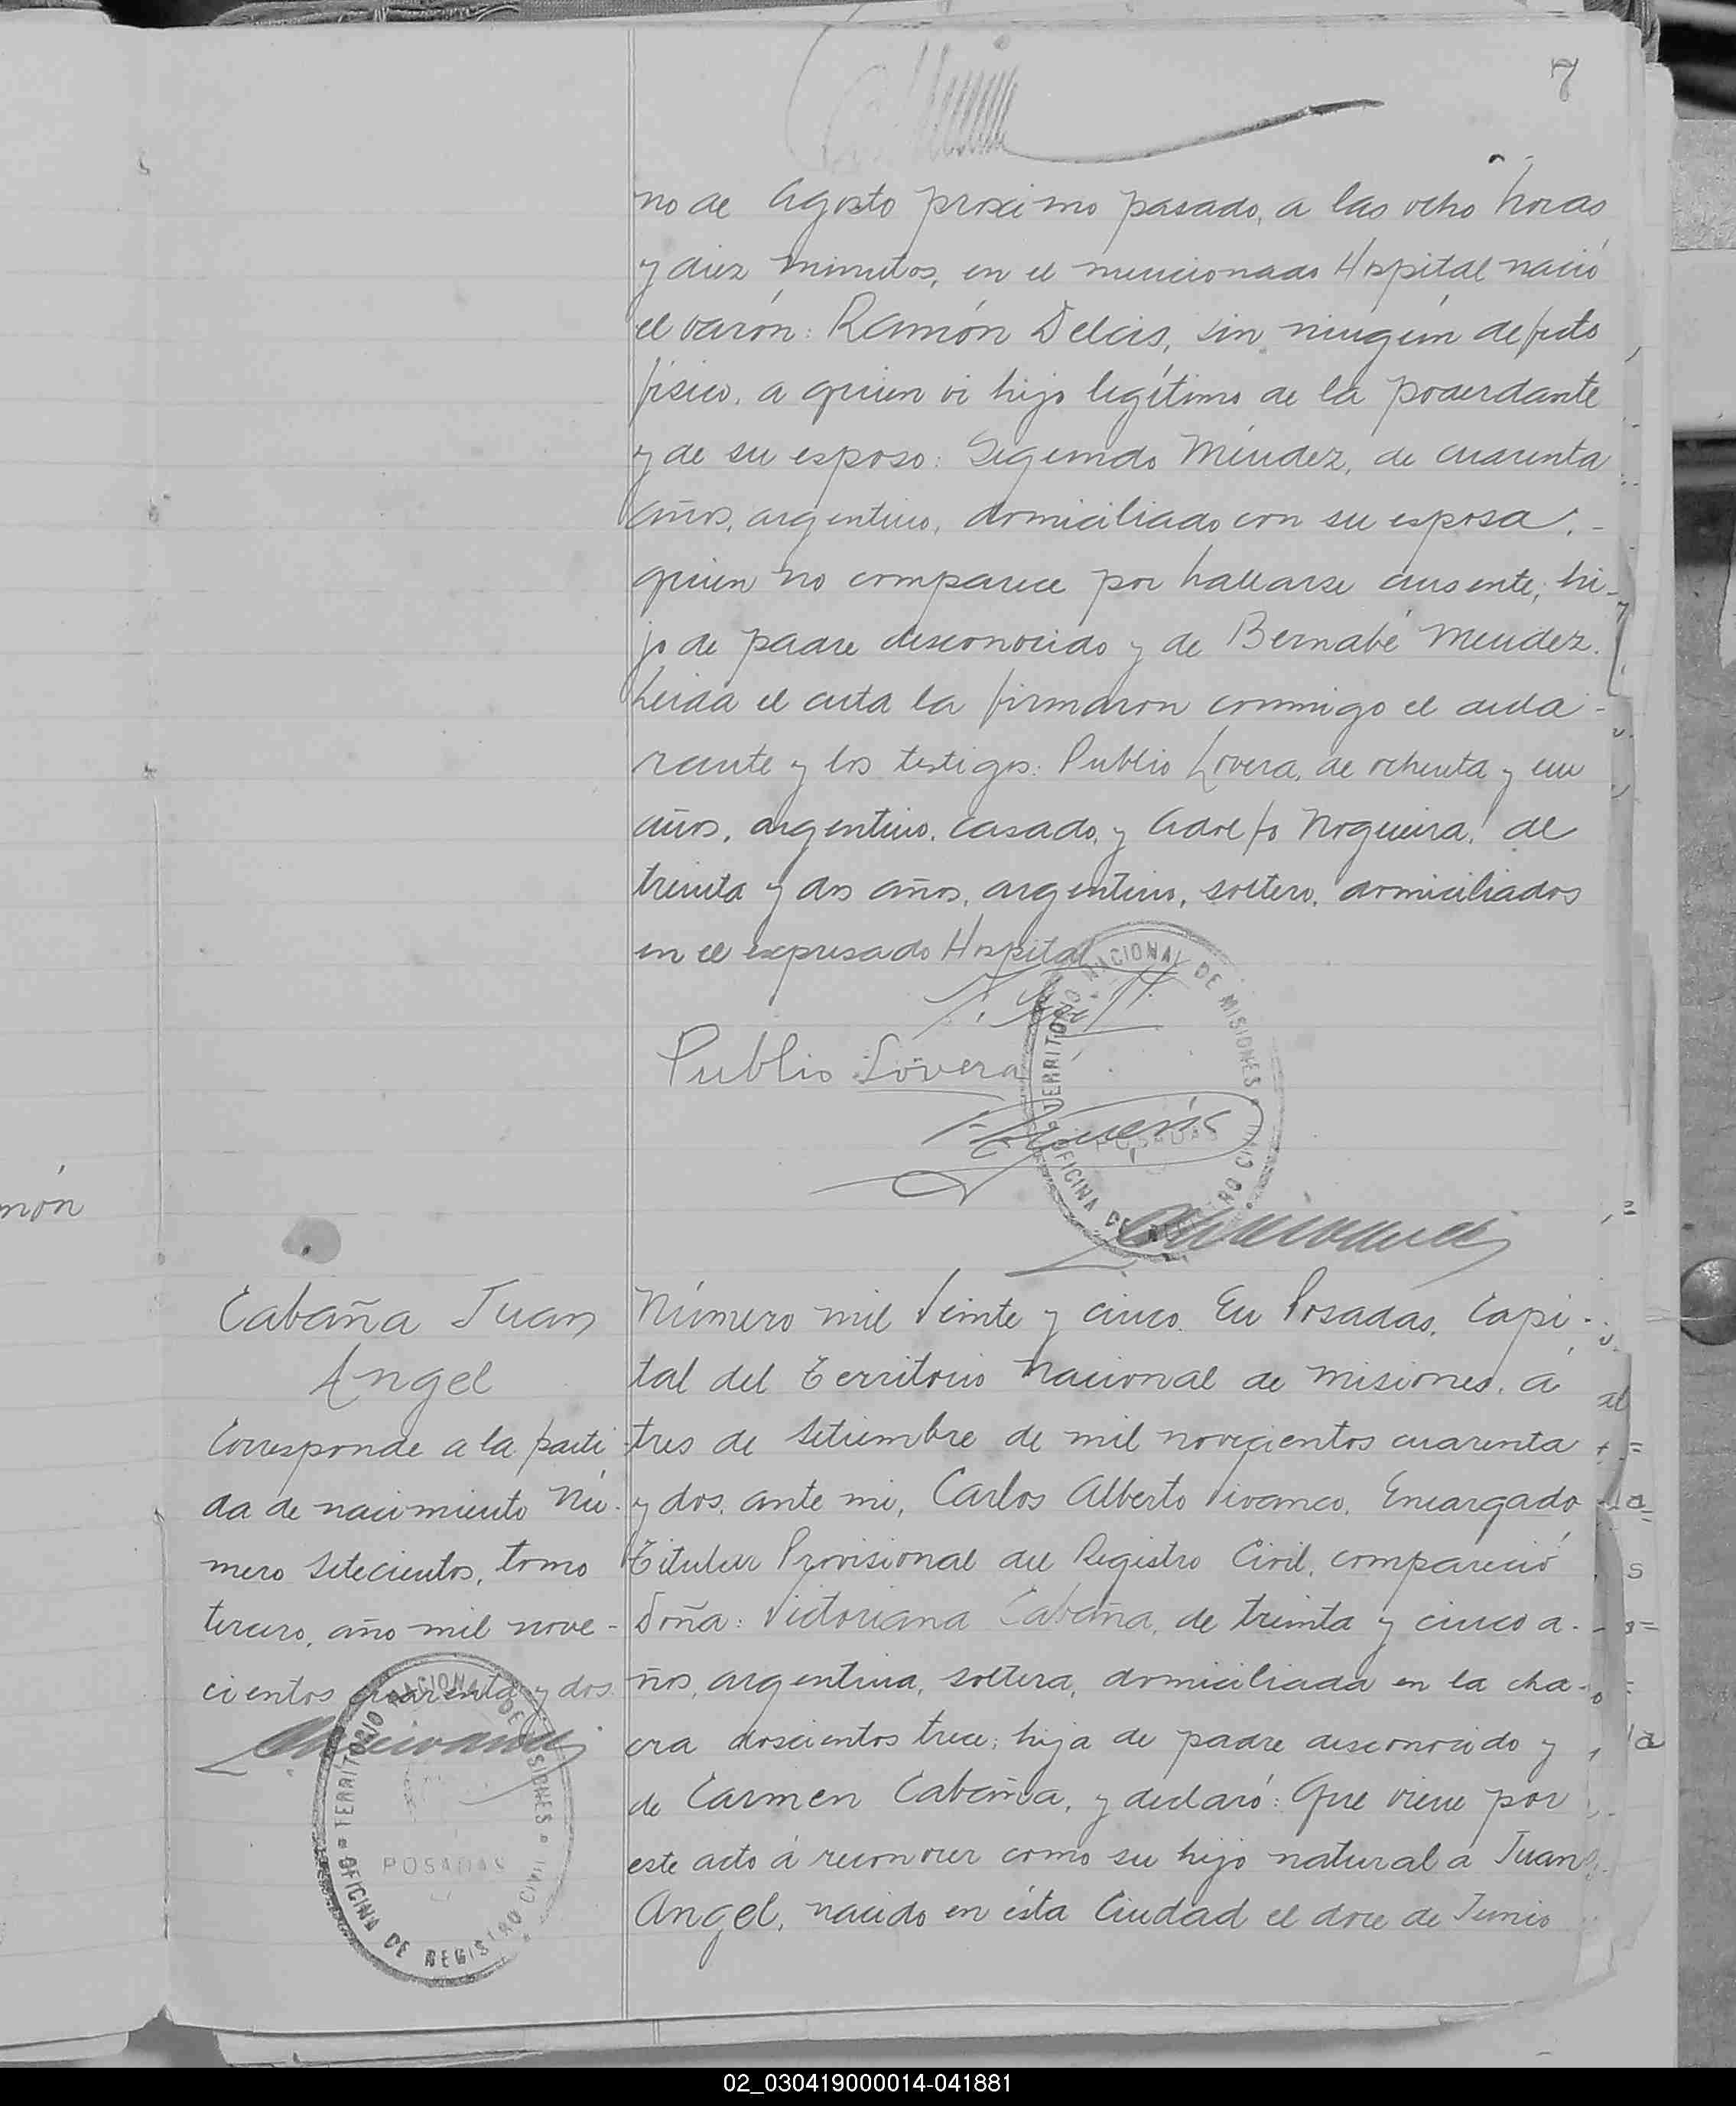 7
no de Agosto proximo pasado, a las ocho horas
y diez minutos, en el mencionado Hospital nació
el varón: Ramón Delcis, sin ningún defecto
físico, a quien vi hijo legítimo de la poderdante
y de su esposo: Segundo Méndez, de cuarenta
años, argentino, domiciliado con su esposa, -
quien no comparece por hallarse ausente; hi-
jo de padre desconocido y de Bernabé Mendez.
Leida el acta la firmaron conmigo el decla-
rante y los testigos: Publio Lovera, de ochenta y un
años, argentino, casado, y Adolfo Nogueira, de
treinta y dos años, argentino, soltero, domiciliados
en el expresado Hospital
TERRITORIO NACIONAL DE MISIONES
Publio Lovera
POSADAS
OFICINA DE REGISTRO CIVIL
món
Cabaña Juan
Angel
Corresponde a la parti-
da de nacimiento Nú-
mero setecientos, tomo
tercero, año mil nove-
cientos cuarenta y dos
TERRITORIO NACIONAL DE MISIONES
POSADAS
OFICINA DE REGISTRO CIVIL
Número mil veinte y cinco. En Posadas, Capi-
tal del Territorio Nacional de Misiones, á
tres de Setiembre de mil novecientos cuarenta
y dos, ante mi, Carlos Alberto Vivanco, Encargado
Titular Provisional del Registro Civil, compareció
Doña: Victoriana Cabaña, de treinta y cinco a-
ños, argentina, soltera, domiciliada en la cha-
cra doscientos trece; hija de padre desconocido y
de Carmen Cabaña, y declaró: Que viene por
este acto á reconocer como su hijo natural a Juan
Angel, nacido en ésta Ciudad el doce de Junio
02_030419000014-041881